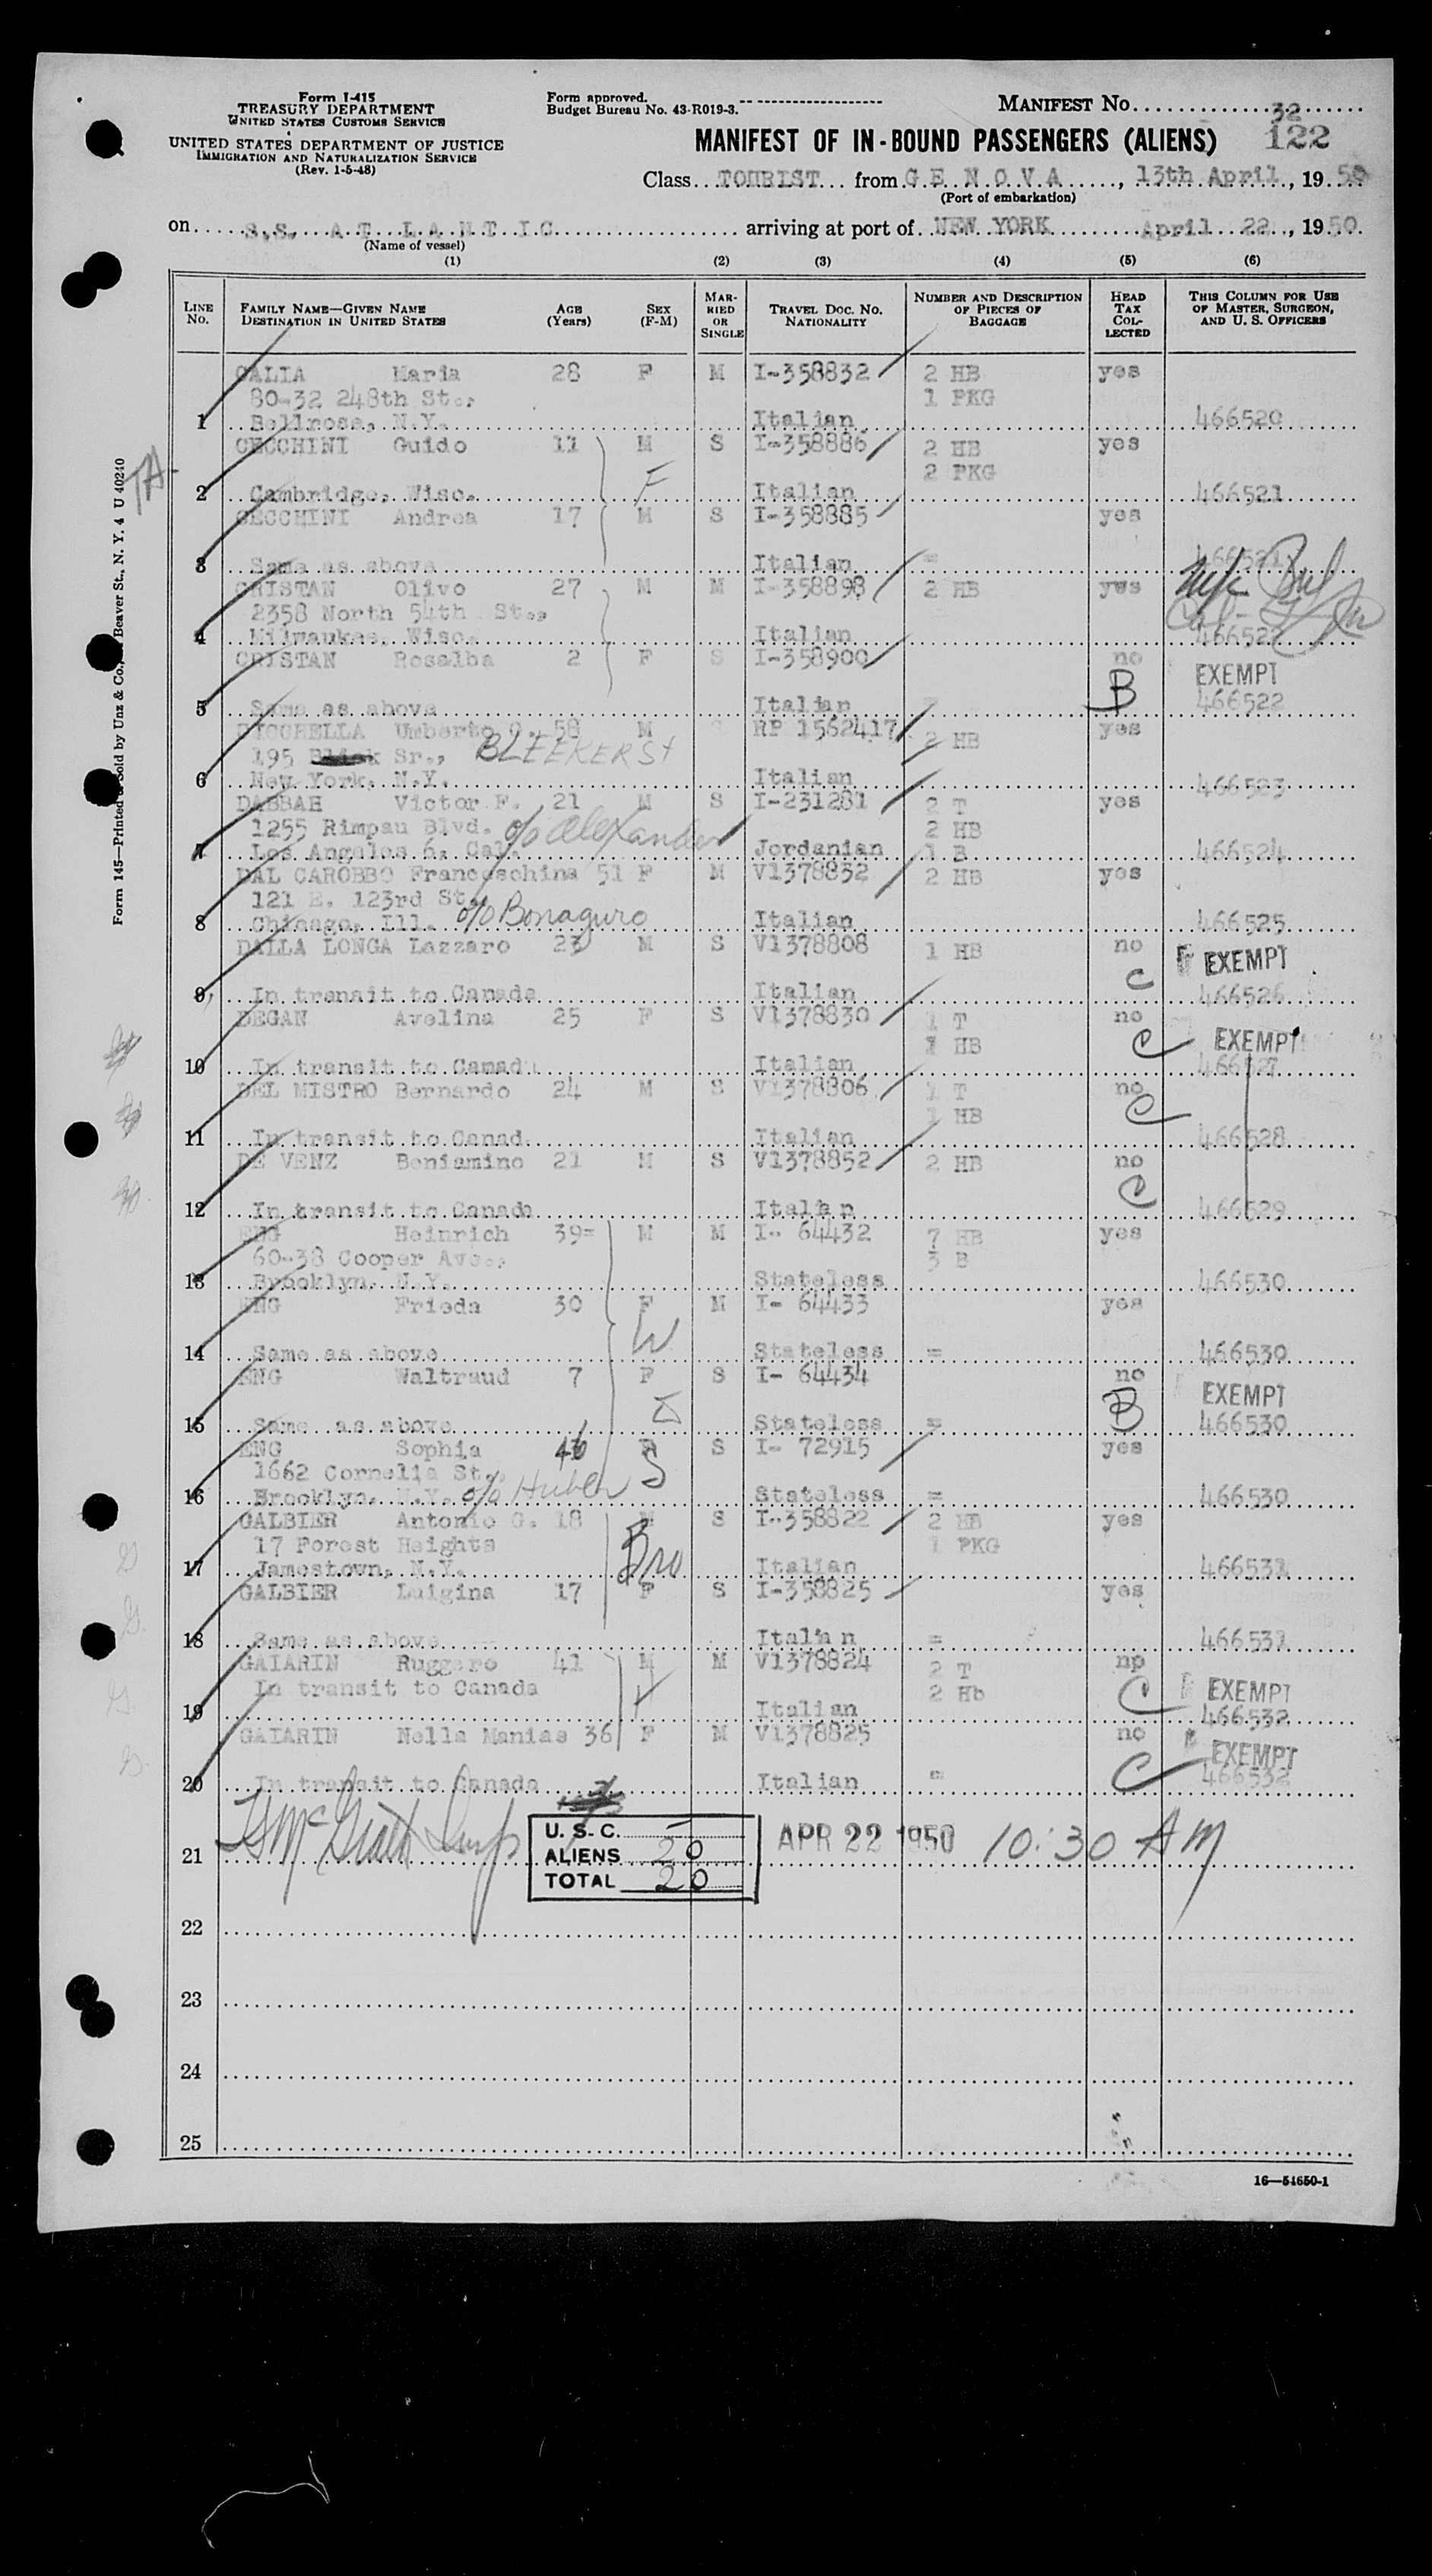 Form I-415
TREASURY DEPARTMENT
UNITED STATES CUSTOMS SERVICE
UNITED STATES DEPARTMENT OF JUSTICE
IMMIGRATION AND NATURALIZATION SERVICE
(Rev. 1-5-48)
Form approved.
Budget Bureau No. 43-R019-3.
MANIFEST No. 32
122
MANIFEST OF IN-BOUND PASSENGERS (ALIENS)
Class TOURIST from G E N O V A, 13th April, 1950
(Port of embarkation)
on S.S. A T L A N T I C arriving at port of NEW YORK April 22, 1950
(Name of vessel)
(1) (2) (3) (4) (5) (6)
LINE No. FAMILY NAME—GIVEN NAME DESTINATION IN UNITED STATES AGE (Years) SEX (F-M) MARRIED OR SINGLE TRAVEL DOC. NO. NATIONALITY NUMBER AND DESCRIPTION OF PIECES OF BAGGAGE HEAD TAX COLLECTED THIS COLUMN FOR USE OF MASTER, SURGEON, AND U. S. OFFICERS
CALIA Maria 28 F M I-358832 2 HB yes
80-32 248th St., 1 PKG
1 Bellrose, N.Y. Italian 466520
CECCHINI Guido 11 M S I-358886 2 HB yes
F 2 PKG
2 Cambridge, Wisc. Italian 466521
CECCHINI Andrea 17 M S I-358885 yes
3 Same as above Italian = 466521
CRISTAN Olivo 27 M M I-358898 2 HB yes
2358 North 54th St.,
4 Milwaukee, Wisc. Italian 466522
CRISTAN Rosalba 2 F S I-358900 no EXEMPT
B
5 Same as above Italian 466522
Umberto G. 58 M RP 1562417 2 HB yes
195 Sr., BLEEKER ST
6 New York, N.Y. Italian 466523
DABBAH Victor F. 21 M S I-231281 2 T yes
1255 Rimpau Blvd. c/o Alexander 2 HB
7 Los Angeles 6, Cal. Jordanian 1 B 466524
DAL CAROBBO Franceschina 51 F M V1378832 2 HB yes
121 E. 123rd St.,
8 Chicago, Ill. c/o Bonaguro Italian 466525
DALLA LONGA Lazzaro 23 M S V1378808 1 HB no EXEMPT
C
9 In transit to Canada Italian 466526
DEGAN Avelina 25 F S V1378830 1 T no EXEMPT
1 HB C
10 In transit to Canada Italian 466527
DEL MISTRO Bernardo 24 M S V1378806 1 T no
1 HB C
11 In transit to Canad. Italian 466528
DE VENZ Beniamino 21 M S V1378852 2 HB no
C
12 In transit to Canada Italian 466529
ENG Heinrich 39 M M I- 64432 7 HB yes
60-38 Cooper Ave., 3 B
13 Brooklyn, N.Y. Stateless 466530
ENG Frieda 30 F M I- 64433 yes
W
14 Same as above Stateless = 466530
ENG Waltraud 7 F S I- 64434 no EXEMPT
B
15 Same as above Stateless = 466530
ENG Sophia F S I- 72915 yes
1662 Cornelia St., S
16 Brooklyn, N.Y. c/o Huber Stateless = 466530
GALBIER Antonio G. 18 M S I-358822 2 HB yes
17 Forest Heights Bro 1 PKG
17 Jamestown, N.Y. Italian 466531
GALBIER Luigina 17 F S I-358825 yes
18 Same as above Italian = 466531
GAIARIN Ruggero 41 M M V1378824 2 T no
In transit to Canada H 2 Hb C EXEMPT
19 Italian 466532
GAIARIN Nella Manias 36 F M V1378825 no EXEMPT
C
20 In transit to Canada Italian = 466532
U. S. C. –
ALIENS 20
TOTAL 20
APR 22 1950 10:30 AM
21
22
23
24
25
16—54650-1